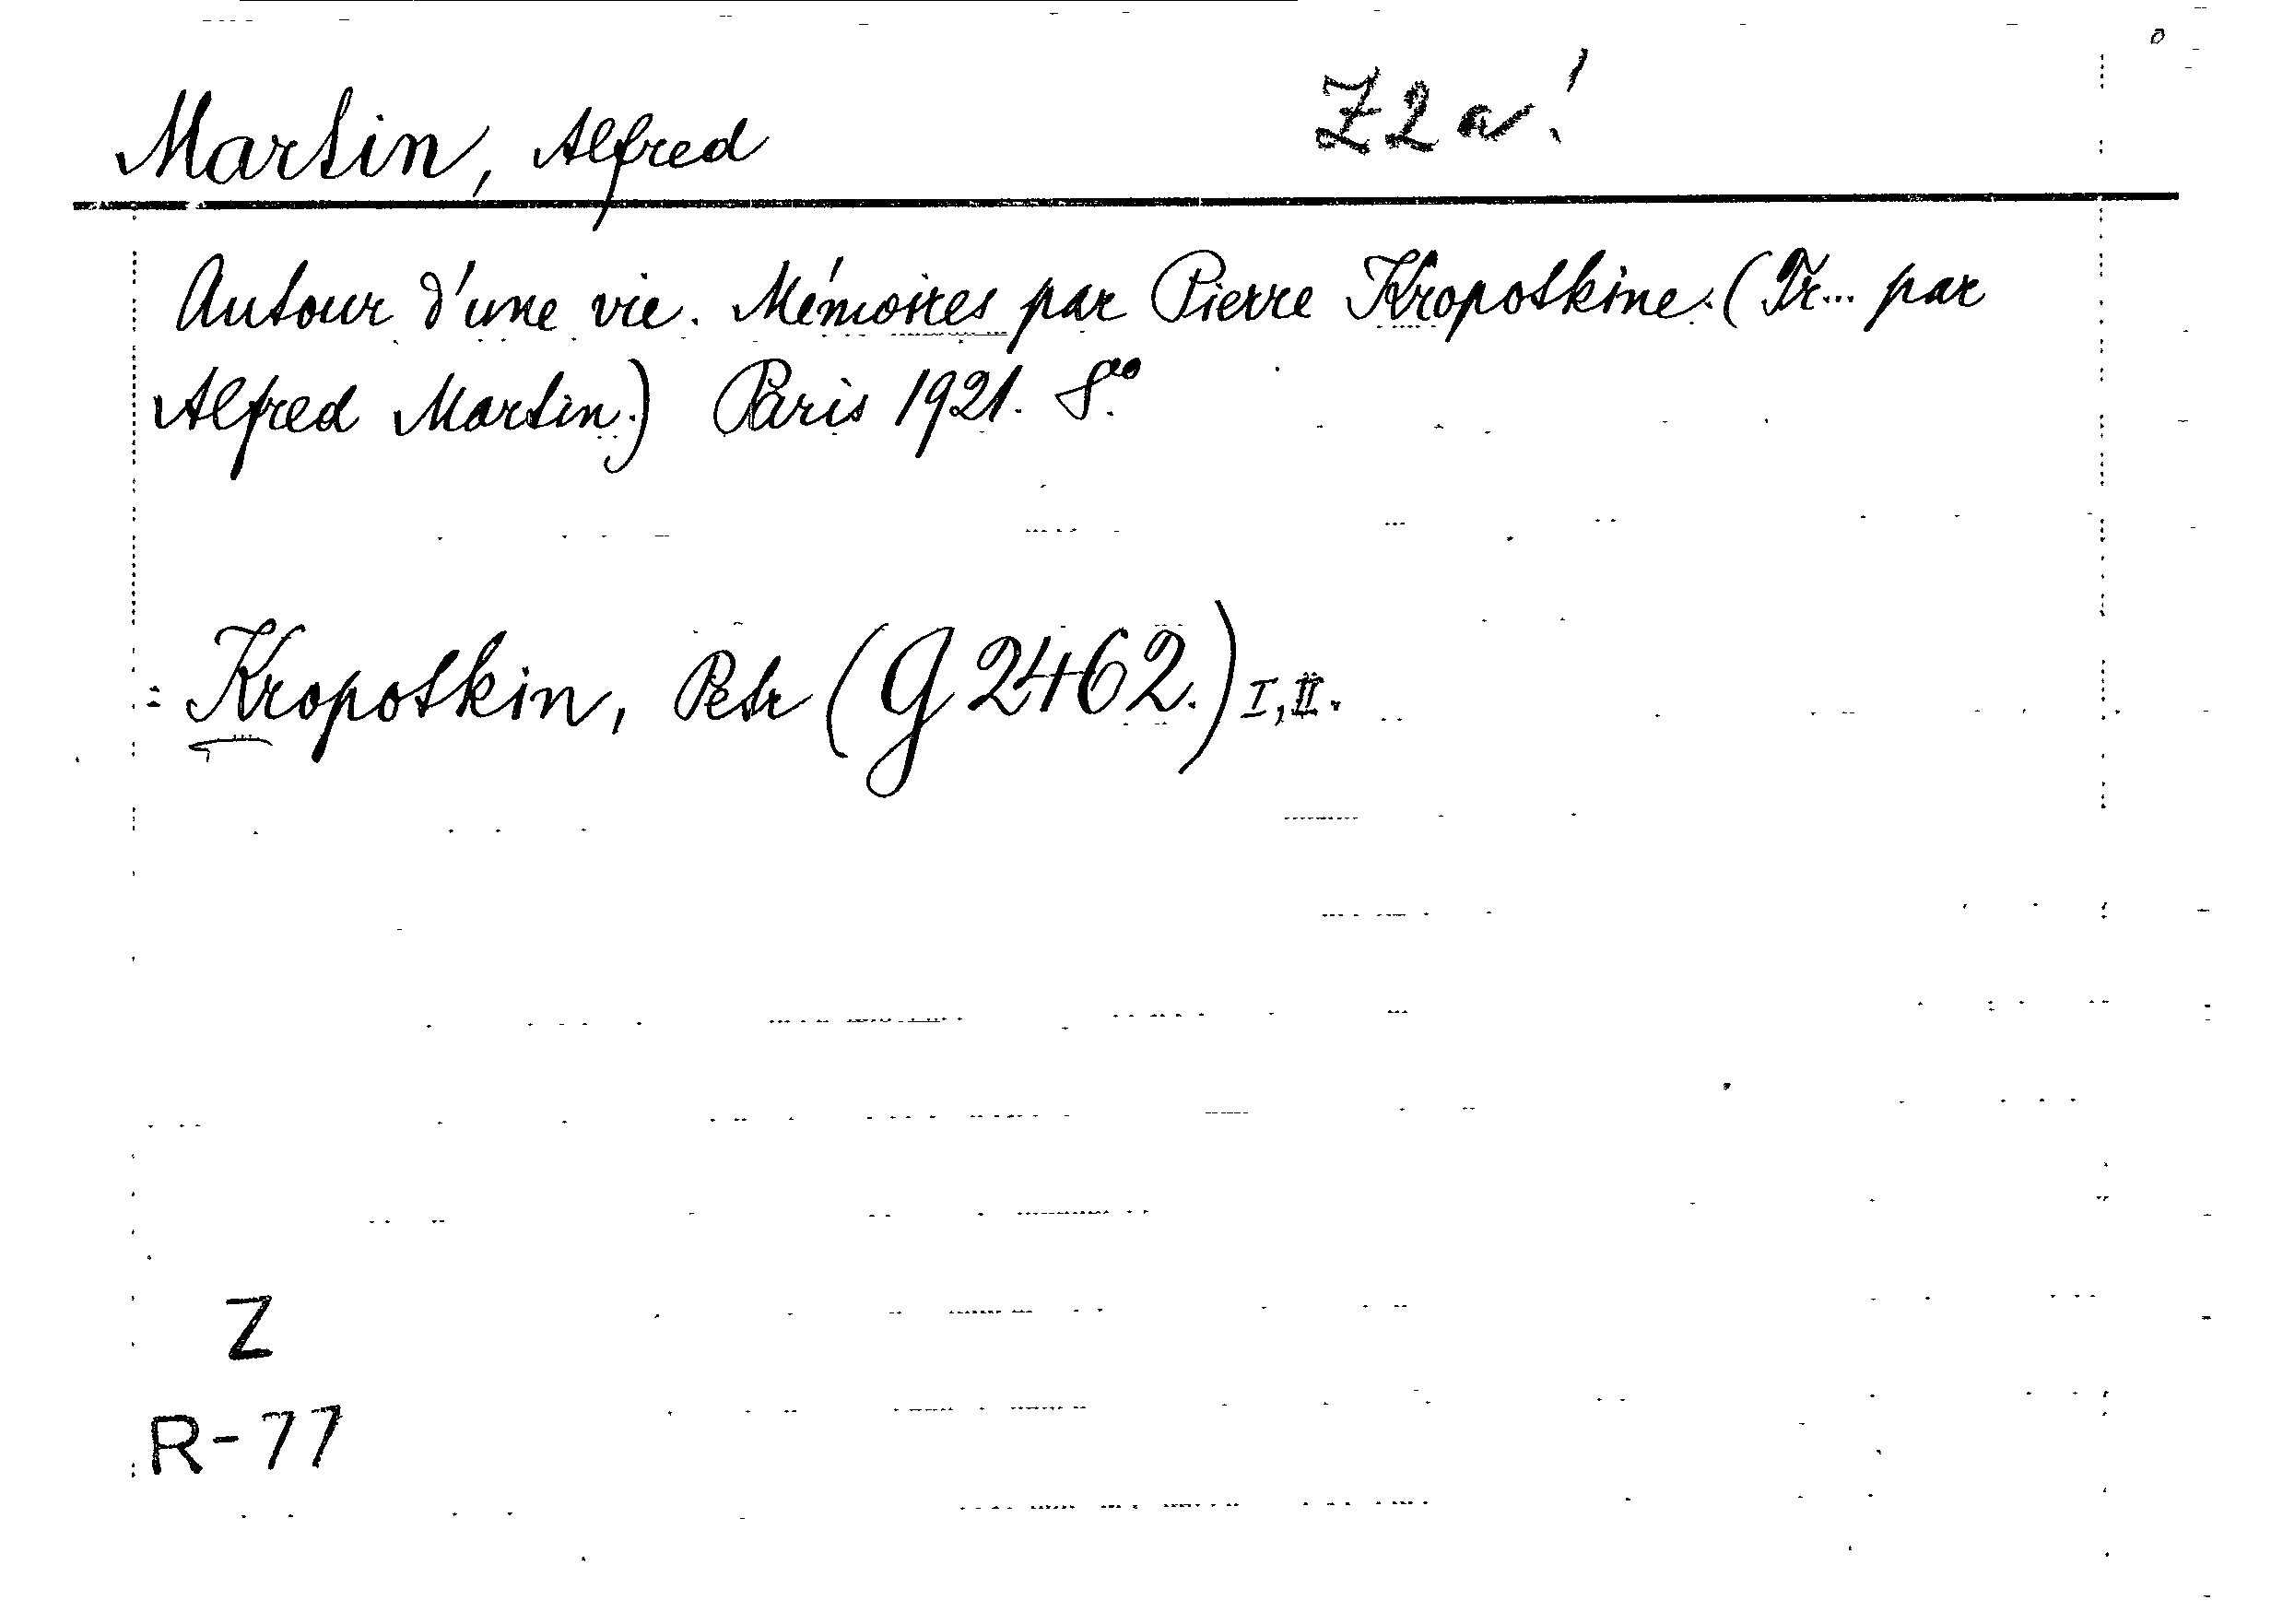 Martin, Alfred Z2a!
Autour d'une vie. Mémoires par Pierre Kropotkine. (Tr... par
Alfred Martin.) Paris 1921. 8°°
= Kropotkin, Petr (G 2462.) I, II.
Z
R-77